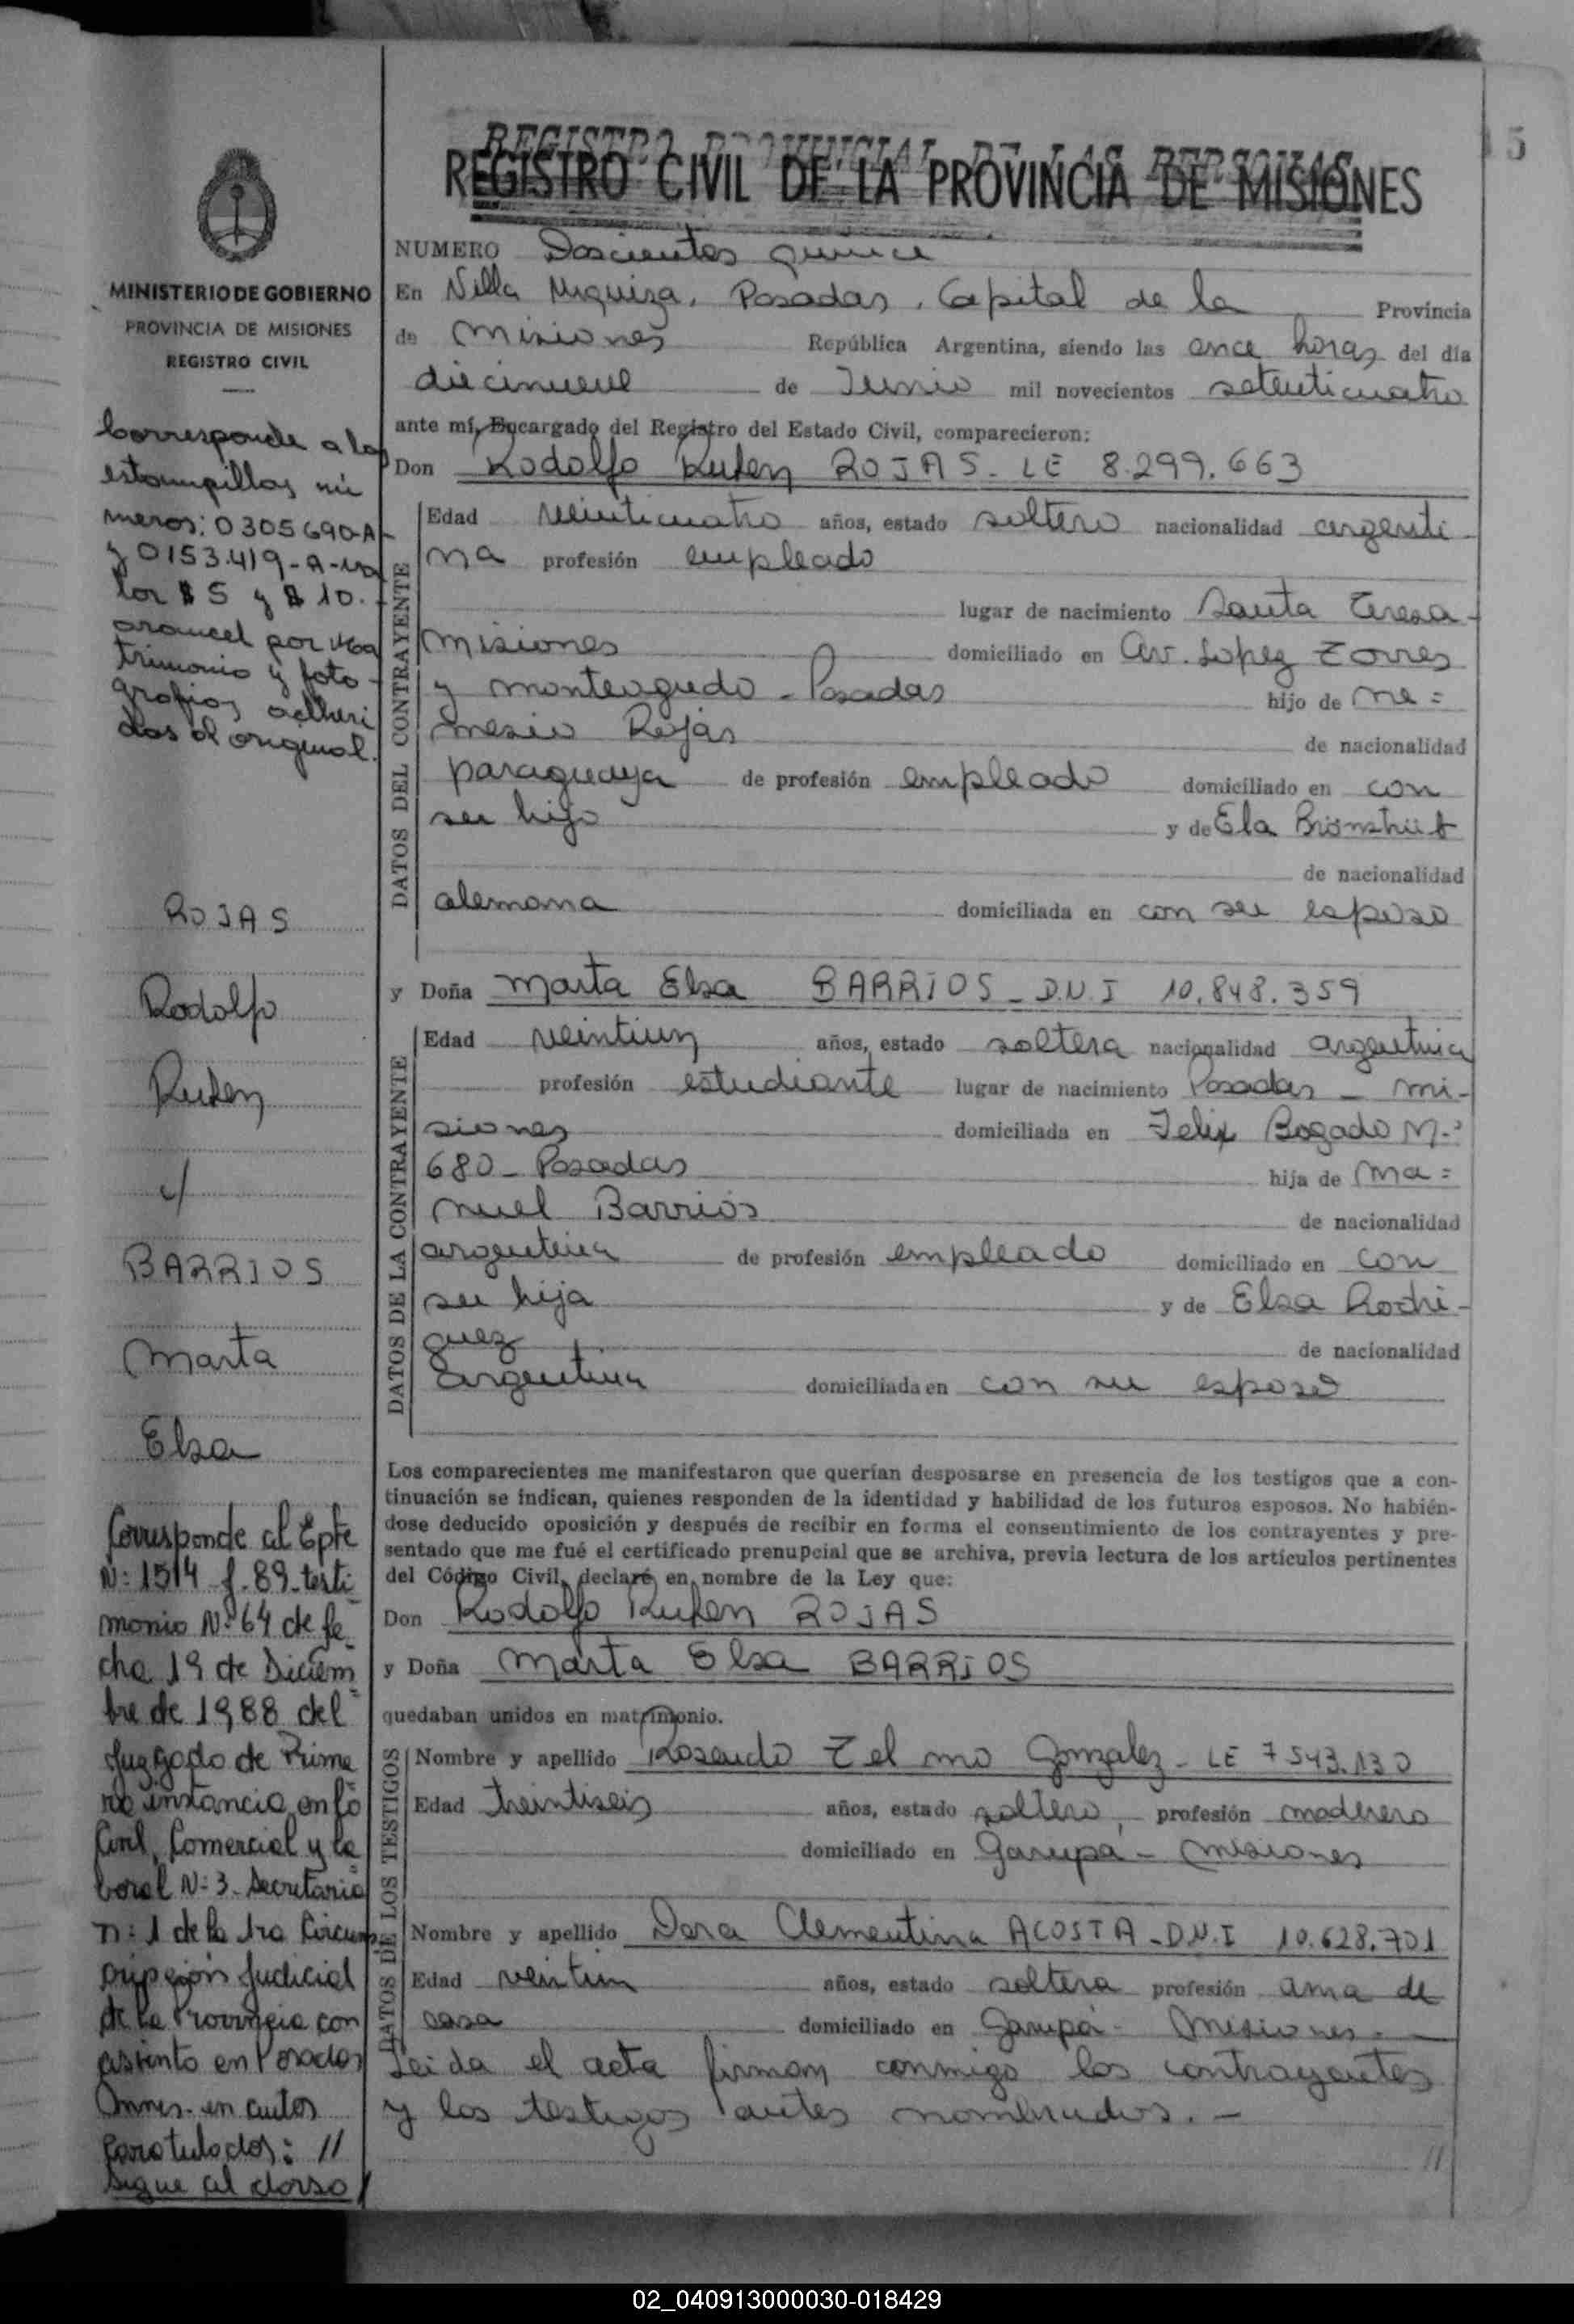 15
REGISTRO PROVINCIAL DE LAS PERSONAS
REGISTRO CIVIL DE LA PROVINCIA DE MISIONES
MINISTERIO DE GOBIERNO
PROVINCIA DE MISIONES
REGISTRO CIVIL
Corresponde a las
estampillas nú
meros: 0305690-A-
y 0153.419-A-va
lor $ 5 y $ 10.-
arancel por Ma
trimonio y foto-
grafias adheri
das al original.
ROJAS
Rodolfo
Ruben
c/
BARRIOS
Marta
Elsa
Corresponde al Epte
Nº: 1514 f. 89-testi
monio Nº 64 de fe
cha 19 de Diciem
bre de 1988 del
Juzgado de Prime
ra instancia en lo
Civil, Comercial y La
boral Nº: 3- Secretaria
nº: 1 de la 1ra Circuns
cripción Judicial
de la Provincia con
asiento en Posadas
Mnes- en autos
caratulados: //
sigue al dorso/
NUMERO Doscientos quince
En Villa Urquiza, Posadas, Capital de la Provincia
de Misiones República Argentina, siendo las once horas del día
diecinueve de Junio mil novecientos setenticuatro
ante mí, Encargado del Registro del Estado Civil, comparecieron:
Don Rodolfo Ruben ROJAS - LE 8.299.663
DATOS DEL CONTRAYENTE
Edad veinticuatro años, estado soltero nacionalidad argenti-
na profesión empleado
lugar de nacimiento Santa Teresa-
misiones domiciliado en Av. Lopez Torres
y monteagudo - Posadas hijo de Ne=
mesio Rojas de nacionalidad
paraguaya de profesión empleado domiciliado en con
su hijo y de Ela Brönstrüt
de nacionalidad
alemana domiciliada en con su esposo
y Doña Marta Elsa BARRIOS - D.N.I 10.848.359
DATOS DE LA CONTRAYENTE
Edad veintiun años, estado soltera nacionalidad argentina
profesión estudiante lugar de nacimiento Posadas - Mi-
siones domiciliada en Felix Bogado Nº
680 - Posadas hija de Ma=
nuel Barrios de nacionalidad
argentina de profesión empleado domiciliado en con
su hija y de Elsa Rodri-
guez de nacionalidad
argentina domiciliada en con su esposo
Los comparecientes me manifestaron que querían desposarse en presencia de los testigos que a con-
tinuación se indican, quienes responden de la identidad y habilidad de los futuros esposos. No habién-
dose deducido oposición y después de recibir en forma el consentimiento de los contrayentes y pre-
sentado que me fué el certificado prenupcial que se archiva, previa lectura de los artículos pertinentes
del Código Civil, declaré en nombre de la Ley que:
Don Rodolfo Ruben ROJAS
y Doña Marta Elsa BARRIOS
quedaban unidos en matrimonio.
DATOS DE LOS TESTIGOS
Nombre y apellido Rosendo Telmo Gonzalez - LE 7543.130
Edad treintiseis años, estado soltero, profesión maderero
domiciliado en Garupá - Misiones
Nombre y apellido Dora Clementina ACOSTA - D.N.I 10.628.701
Edad veintiun años, estado soltera profesión ama de
casa domiciliado en Garupá - Misiones.-
Leida el acta firman conmigo los contrayentes
y los testigos antes nombrados.-
//
02_040913000030-018429